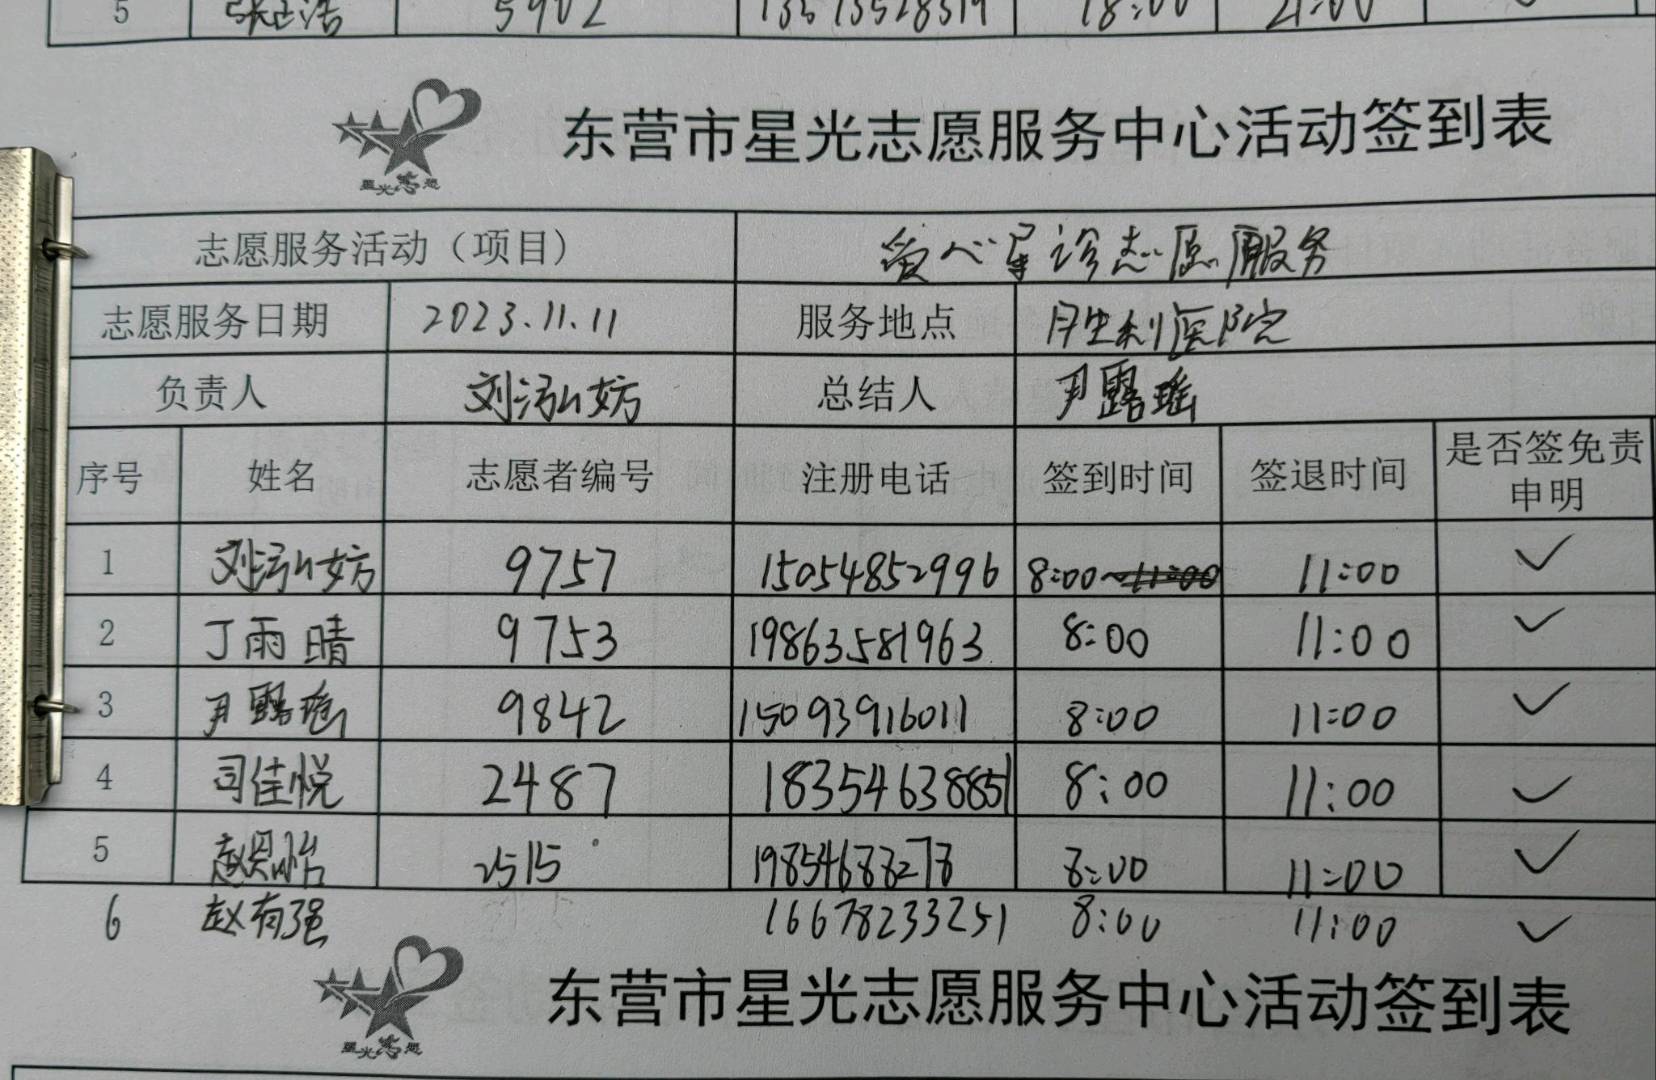 5 5902 13573528319 18:00 21:00 ✓
星光志愿
东营市星光志愿服务中心活动签到表
志愿服务活动（项目） 爱心导诊志愿服务
志愿服务日期 2023.11.11 服务地点 胜利医院
负责人 刘泓妨 总结人 尹露瑶
序号 姓名 志愿者编号 注册电话 签到时间 签退时间 是否签免责
申明
1 刘泓妨 9757 15054852996 8:00 11:00 ✓
2 丁雨晴 9753 19863581963 8:00 11:00 ✓
3 尹露瑶 9842 15093916011 8:00 11:00 ✓
4 司佳悦 2487 18354638851 8:00 11:00 ✓
5 赵恩怡 2515 19854688278 8:00 11:00 ✓
6 赵有强 16678233251 8:00 11:00 ✓
星光志愿
东营市星光志愿服务中心活动签到表